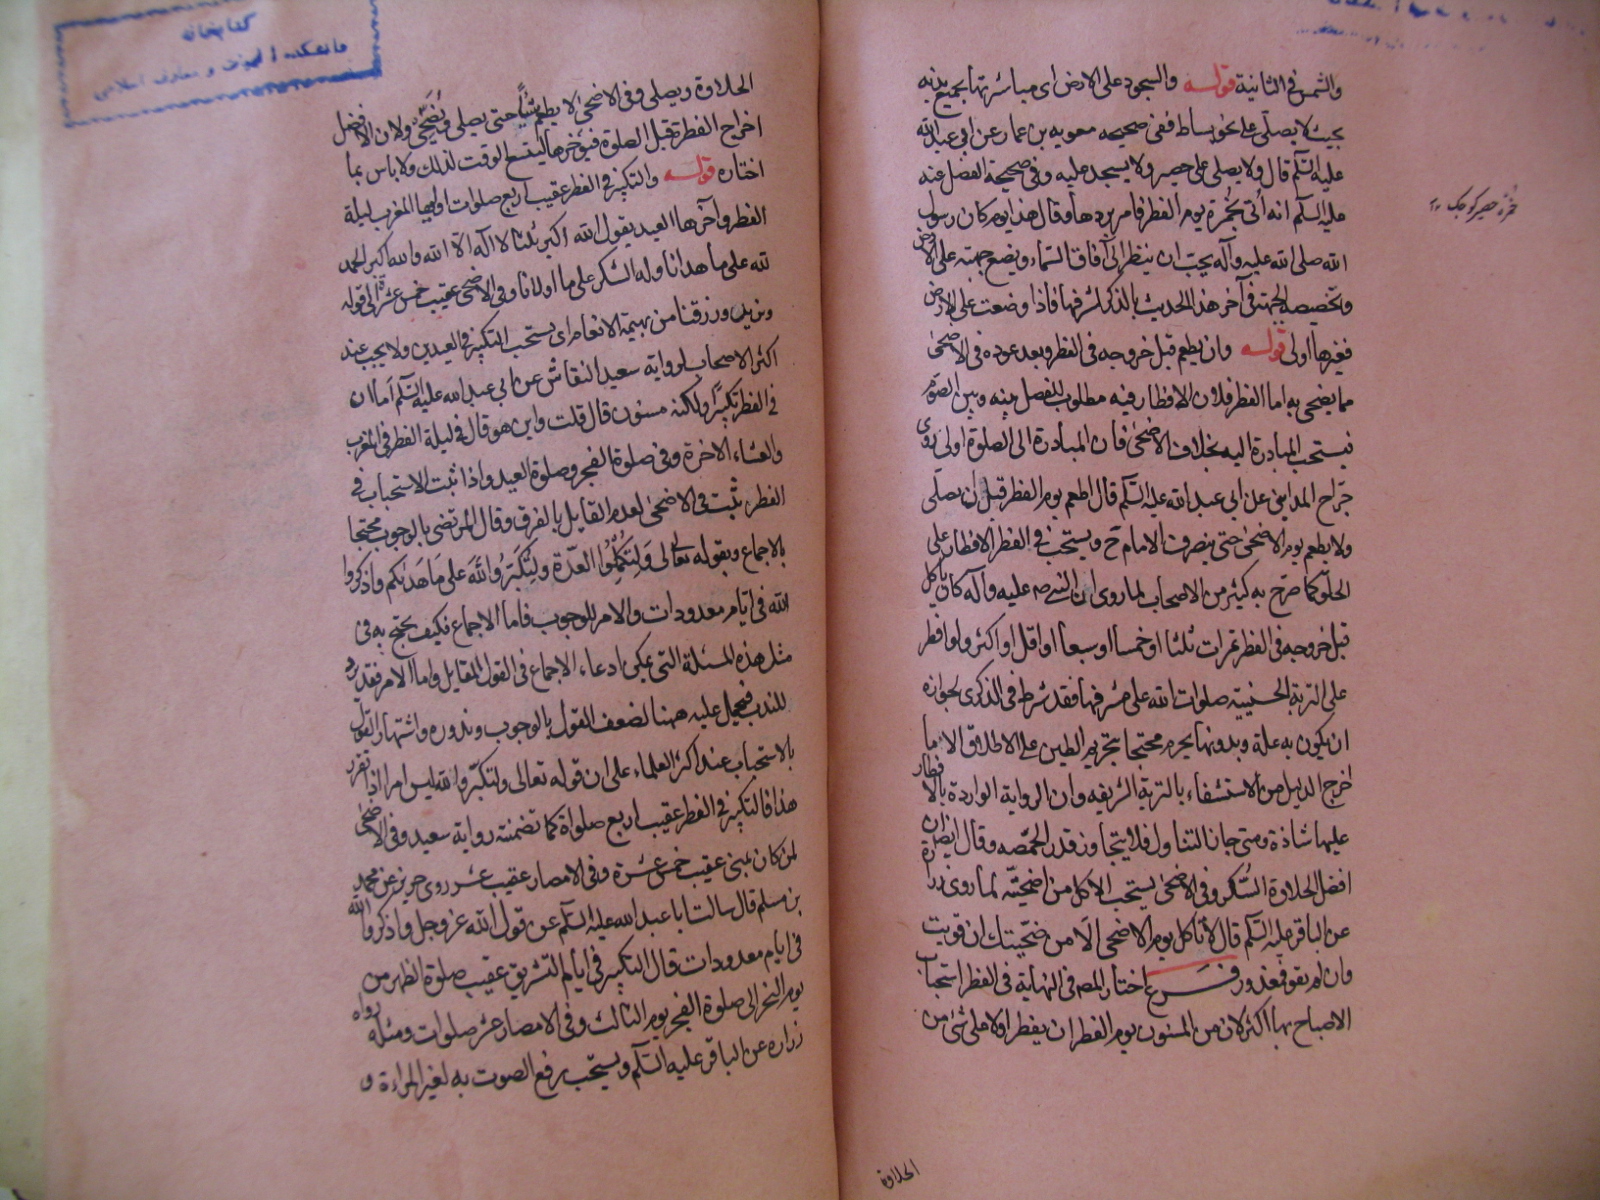 والشمس في الثانية قوله والسجود على الارض اى مباشرتها بجميع بدنه
بحيث لا يصلى على نحو بساط ففى صحيحه معويه بن عمار عن ابى عبد الله
عليه السلم قال ولا يصلى على حصير ولا يسجد عليه وفى صحيحة الفضل عنه
عليه السلم انه اُتى بخُمرة يوم الفطر فامر بردها وقال هذا يوم كان رسول
الله صلى الله عليه وآله يحب ان ينظر الى آفاق السماء ويضع جبهته على الارض
وتخصيصه الجبهة فى آخر هذا الحديث بالذكر لشرفها فاذا وضعت على الارض
فغيرها اولى قوله وان يطعم قبل خروجه فى الفطر وبعد عوده فى الاضحى
مما يضحى به اما الفطر فلان الافطار فيه مطلوب للفصل بينه وبين الصوم
فيستحب المبادرة اليه بخلاف الاضحى فان المبادرة الى الصلوة اولى روى
جراح المداينى عن ابى عبد الله عليه السلم قال اطعم يوم الفطر قبل ان يصلى
ولا يطعم يوم الاضحى حتى ينصرف الامام ح ويستحب فى الفطر الافطار على
الحلو كما صرح به كثير من الاصحاب لما روى ان النبى صه عليه وآله كان ياكل
قبل خروجه فى الفطر تمرات ثلثا او خمسا او سبعا او اقل او اكثر ولو افطر
على التربة الحسينيه صلوات الله على مشرفها فقد شرط فى الذكرى لجوازه
ان يكون به علة وبدونها يحرم محتجا بتحريم الطين على الاطلاق الا ما
اخرج الدليل من الاستشفاء بالتربة الشريفه وان الرواية الواردة بالافطار
عليها شاذة ومتى جاز التناول فلا يتجاوز قدر الحمصه وقال ايضا ان
افضل الحلاوة السُّكر وفى الاضحى يستحب الاكل من اضحيته لما روى زرارة
عن الباقر عليه السلم قال لا تاكل يوم الاضحى الا من ضحيتك ان قويت
وان لم يقو فمعذور فرع اختار المصه فى النهاية فى الفطر استحباب
الاصباح بها اكثر لان من المسنون يوم الفطر ان يفطر اولا على شئ من
خُمرة حصير كوچك
الحلاوة
كتابخانه
دانشكده الهيات و معارف اسلامى
الحلاوة ويصلى وفى الاضحى لا يطعم شيئًا حتى يصلى ويُضَحّى ولان الافضل
اخراج الفطرة قبل الصلوة فيؤخرها ليتسع الوقت لذلك ولا باس بما
اختاره قوله والتكبير فى الفطر عقيب اربع صلوات اولها المغرب ليلة
الفطر وآخرها العيد يقول الله اكبر ثلثا لا اله الا الله والله اكبر الحمد
لله على ما هدانا وله الشكر على ما اولانا وفى الاضحى عقيب خمس عشرة الى قوله
ويزيد ورزقنا من بهيمة الانعام اى يستحب التكبير فى العيدين ولا يجب عند
اكثر الاصحاب لرواية سعيد النقاش عن ابى عبد الله عليه السلم اما ان
فى الفطر تكبيرًا ولكنه مسنون قال قلت واين هو قال فى ليلة الفطر فى المغرب
والعشاء الاخرة وفى صلوة الفجر وصلوة العيد واذا ثبت الاستحباب فى
الفطر ثبت فى الاضحى لعدم القايل بالفرق وقال المرتضى بالوجوب محتجا
بالاجماع وبقوله تعالى وَلِتُكمِلُوا العدّة ولِتُكَبِّرُوا الله على ما هَدَيكم واذكروا
الله فى ايام معدودات والامر للوجوب فاما الاجماع فكيف يحتج به فى
مثل هذه المسئلة التى يمكن ادعاء الاجماع فى القول المقابل واما الامر فقد يرد
للندب فيحمل عليه ههنا لضعف القول بالوجوب وندوره واشتهار القول
بالاستحباب عند اكثر العلماء على ان قوله تعالى ولتكبروا الله ليس امرا اذا تقرر
هذا فالتكبير فى الفطر عقيب اربع صلواة كما تضمنته رواية سعيد وفى الاضحى
لمن كان بمنى عقيب خمس عشرة وفى الامصار عقيب عشر روى حريز عن محمد
بن مسلم قال سالت ابا عبد الله عليه السلم عن قول الله عز وجل واذكروا الله
فى ايام معدودات قال التكبير فى ايام التشريق عقيب صلوة الظهر من
يوم النحر الى صلوة الفجر يوم الثالث وفى الامصار عشر صلوات ومثله رواه
زراره عن الباقر عليه السلم ويستحب رفع الصوت به لغير المراءة و